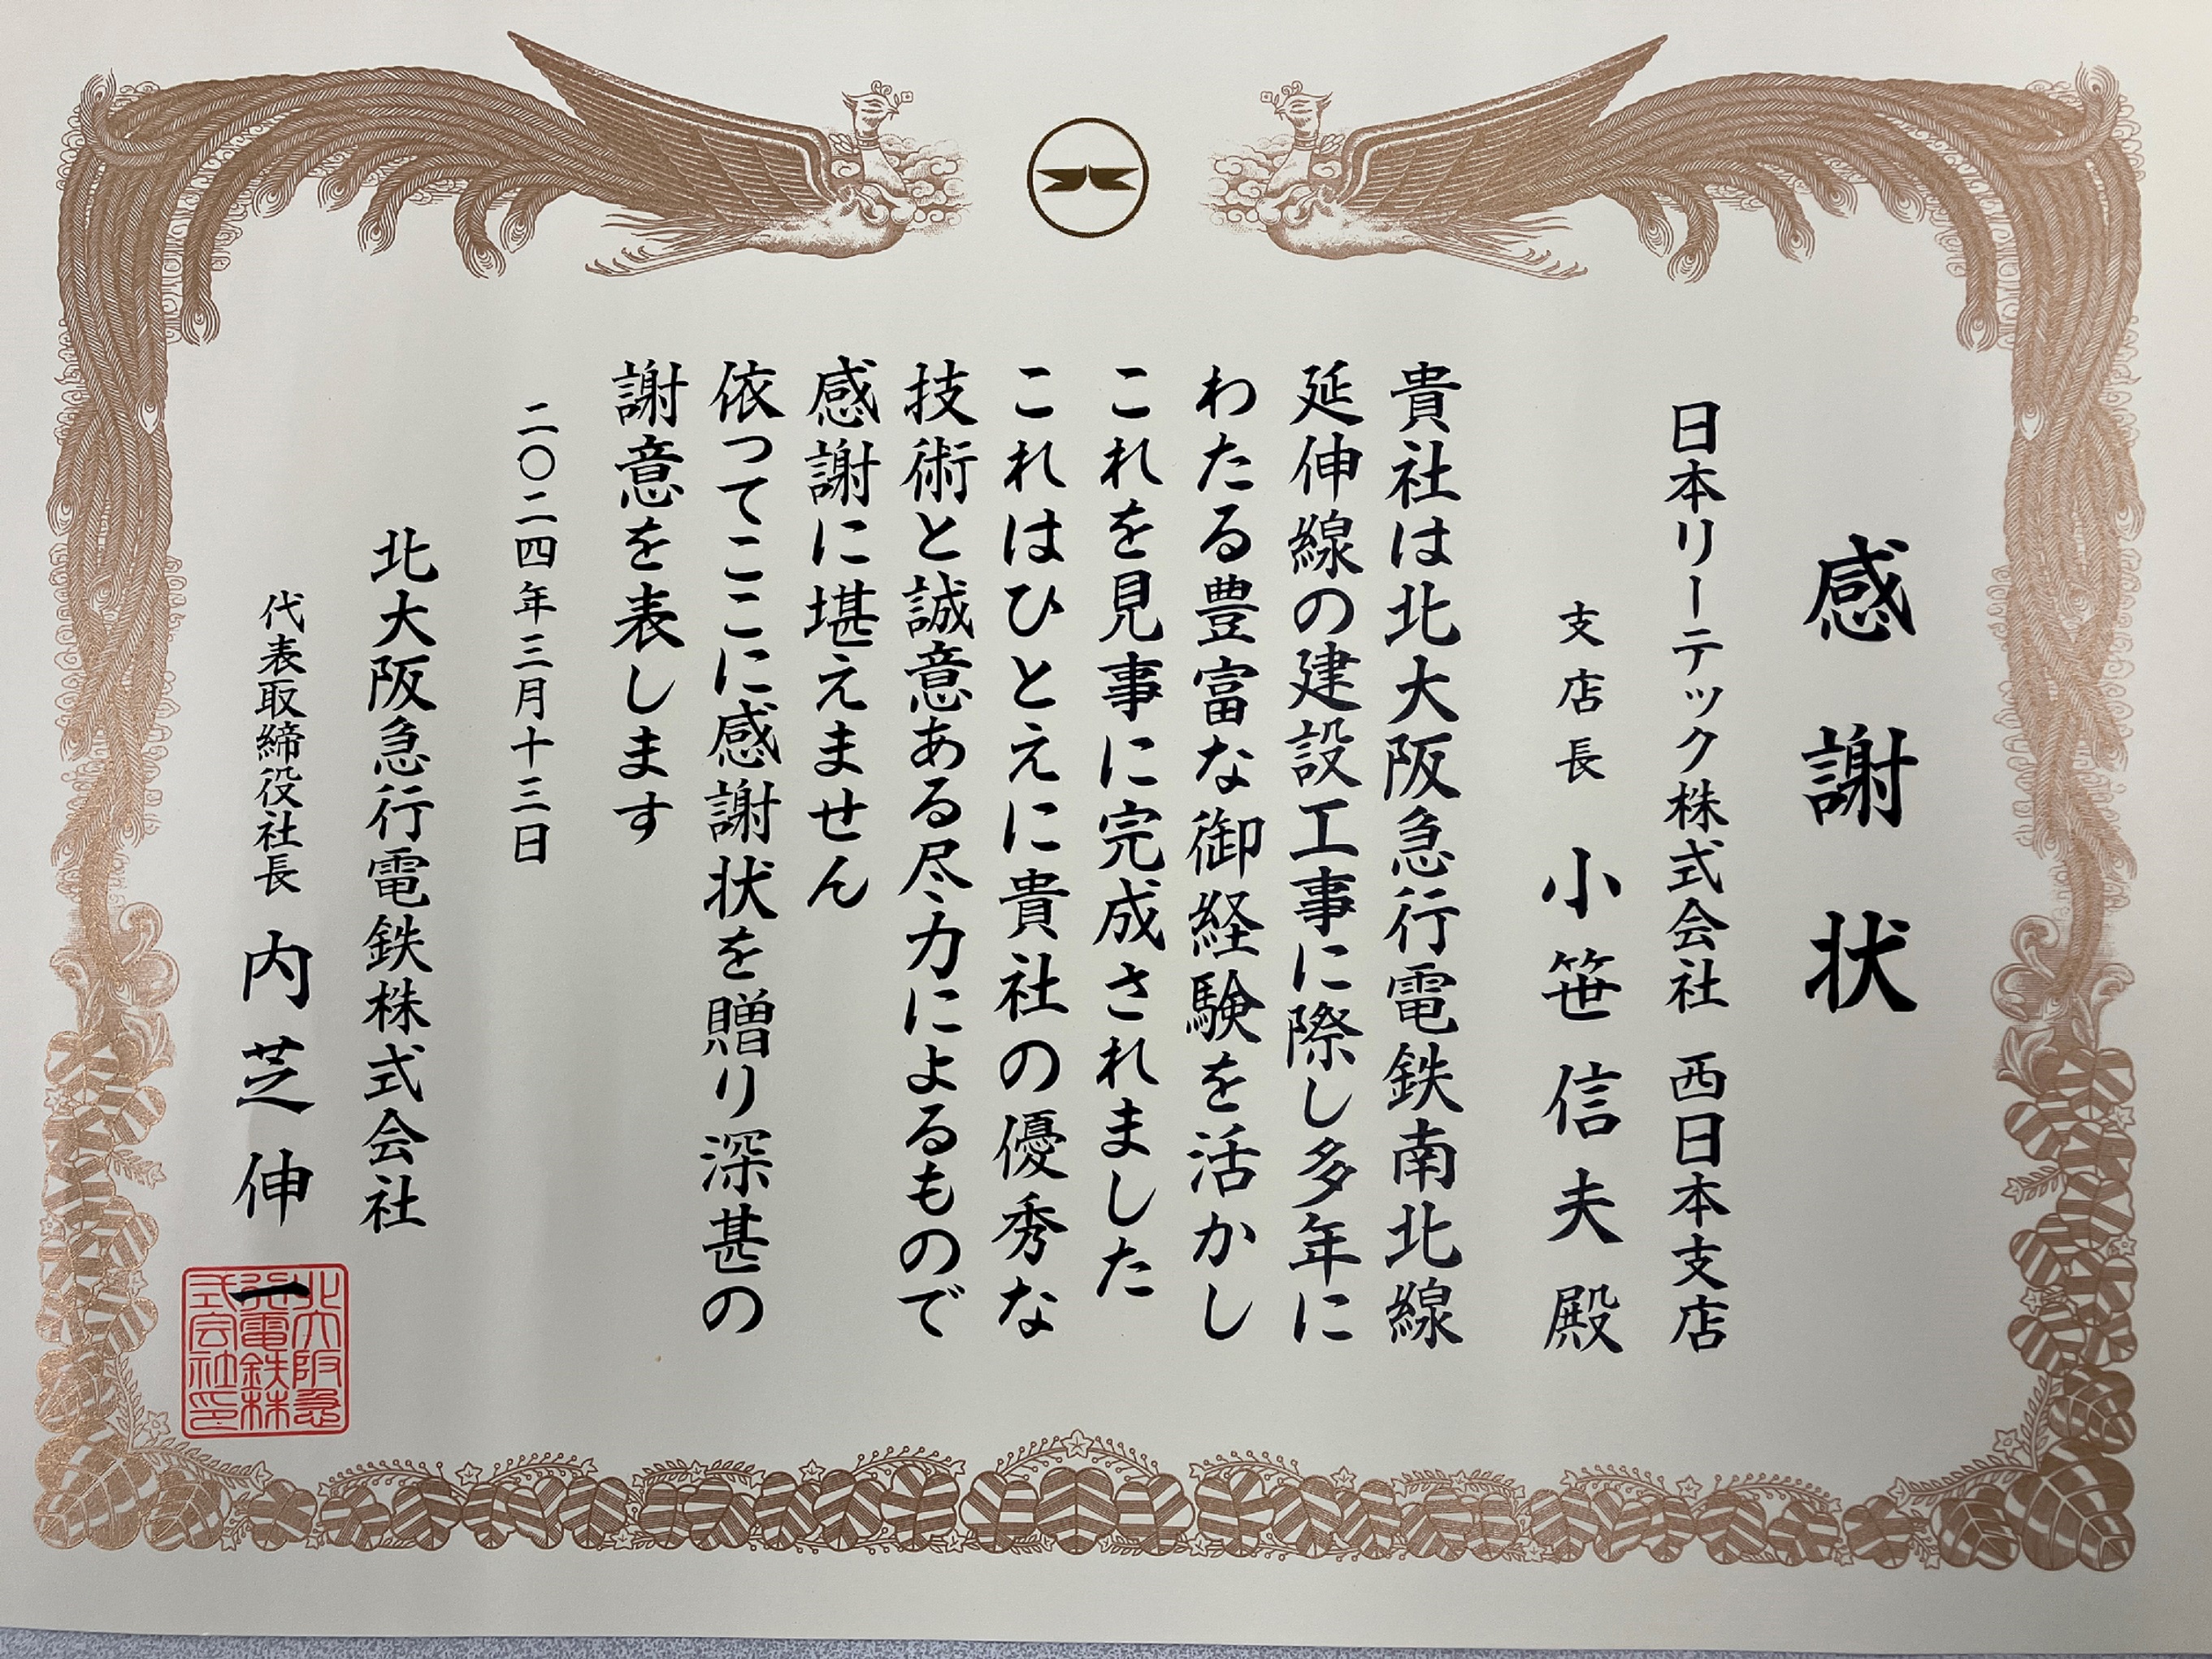 感謝状
日本リーテック株式会社 西日本支店
支店長 小笹信夫殿
貴社は北大阪急行電鉄南北線
延伸線の建設工事に際し多年に
わたる豊富な御経験を活かし
これを見事に完成されました
これはひとえに貴社の優秀な
技術と誠意ある尽力によるもので
感謝に堪えません
依つてここに感謝状を贈り深甚の
謝意を表します
二〇二四年三月十三日
北大阪急行電鉄株式会社
代表取締役社長 内芝伸一
北大阪急
行電鉄株
式会社印